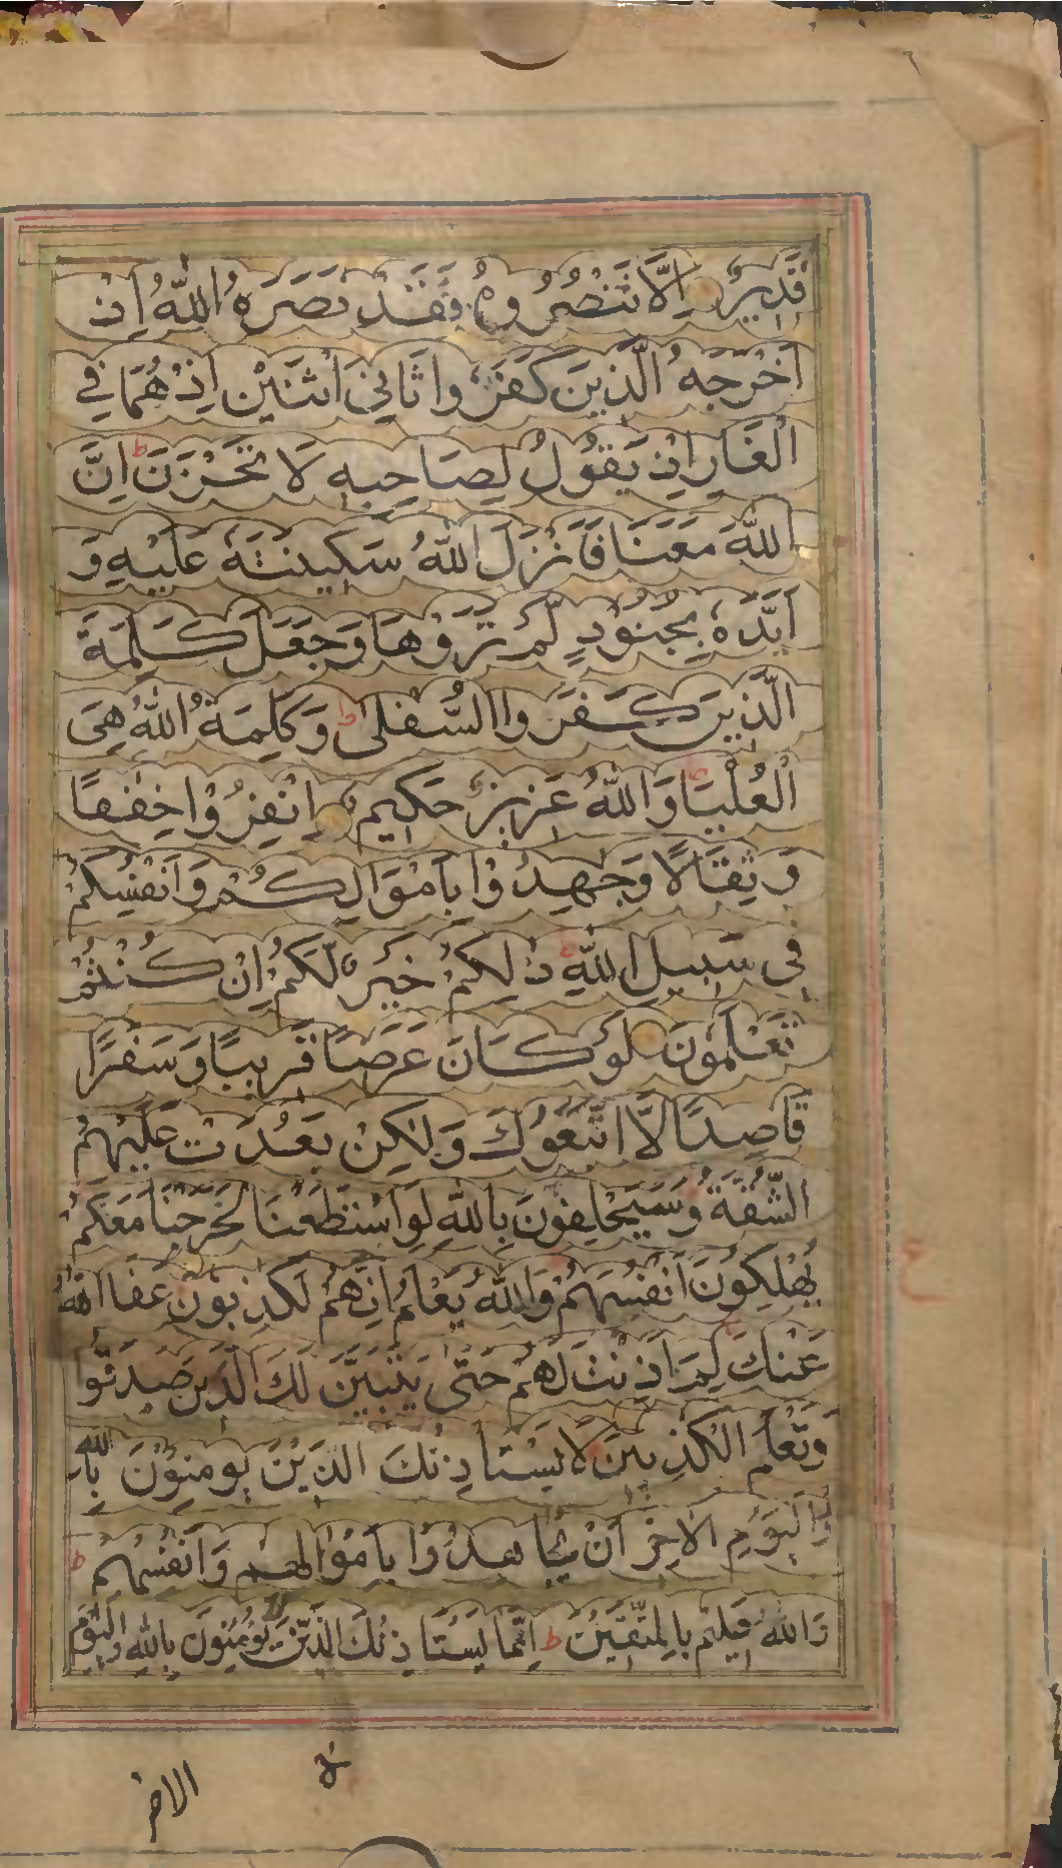 قَدِيرٌ اِلَّا تَنْصُرُوهُ فَقَدْ نَصَرَهُ اللّٰهُ اِذْ
اَخْرَجَهُ الَّذِينَ كَفَرُوا ثَانِيَ اثْنَيْنِ اِذْ هُمَا فِي
الْغَارِ اِذْ يَقُولُ لِصَاحِبِهٖ لَا تَحْزَنَ ط اِنَّ
اللّٰهَ مَعَنَا فَاَنْزَلَ اللّٰهُ سَكِينَتَهٗ عَلَيْهِ وَ
اَيَّدَهٗ بِجُنُودٍ لَّمْ تَرَوْهَا وَجَعَلَ كَلِمَةَ
الَّذِينَ كَفَرَوا السُّفْلٰى ط وَكَلِمَةُ اللّٰهِ هِيَ
الْعُلْيَا وَاللّٰهُ عَزِيزٌ حَكِيمٌ اِنْفِرُوْا خِفٰفًا
وَثِقَالًا وَجٰهِدُوْا بِاَمْوَالِكُمْ وَاَنْفُسِكُمْ
فِى سَبِيلِ اللّٰهِ ذٰلِكُمْ خَيْرٌ لَّكُمْ اِنْ كُنْتُمْ
تَعْلَمُونَ لَوْ كَانَ عَرَضًا قَرِيبًا وَسَفَرًا
قَاصِدًا لَّا اتَّبَعُوكَ وَلٰكِنْ بَعُدَتْ عَلَيْهِمُ
الشُّقَّةُ وَسَيَحْلِفُونَ بِاللّٰهِ لَوِاسْتَطَعْنَا لَخَرَجْنَا مَعَكُمْ
يُهْلِكُونَ اَنْفُسَهُمْ وَاللّٰهُ يَعْلَمُ اِنَّهُمْ لَكٰذِبُونَ عَفَا اللّٰهُ
ع
عَنْكَ لِمَ اَذِنْتَ لَهُمْ حَتّٰى يَتَبَيَّنَ لَكَ الَّذِينَ صَدَقُوا
وَتَعْلَمَ الْكٰذِبِينَ لَا يَسْتَاْذِنُكَ الَّذِيْنَ يُومِنُوْنَ بِاللّٰهِ
وَالْيَوْمِ الْاٰخِرِ اَنْ يُّجَاهِدُوْا بِاَمْوَالِهِمْ وَاَنْفُسِهِمْ ط
وَاللّٰهُ عَلِيْمٌ بِالْمُتَّقِيْنَ ط اِنَّمَا يَسْتَاذِنُكَ الَّذِيْنَ لَا يُؤْمِنُونَ بِاللّٰهِ وَالْيَوْمِ
الاخر